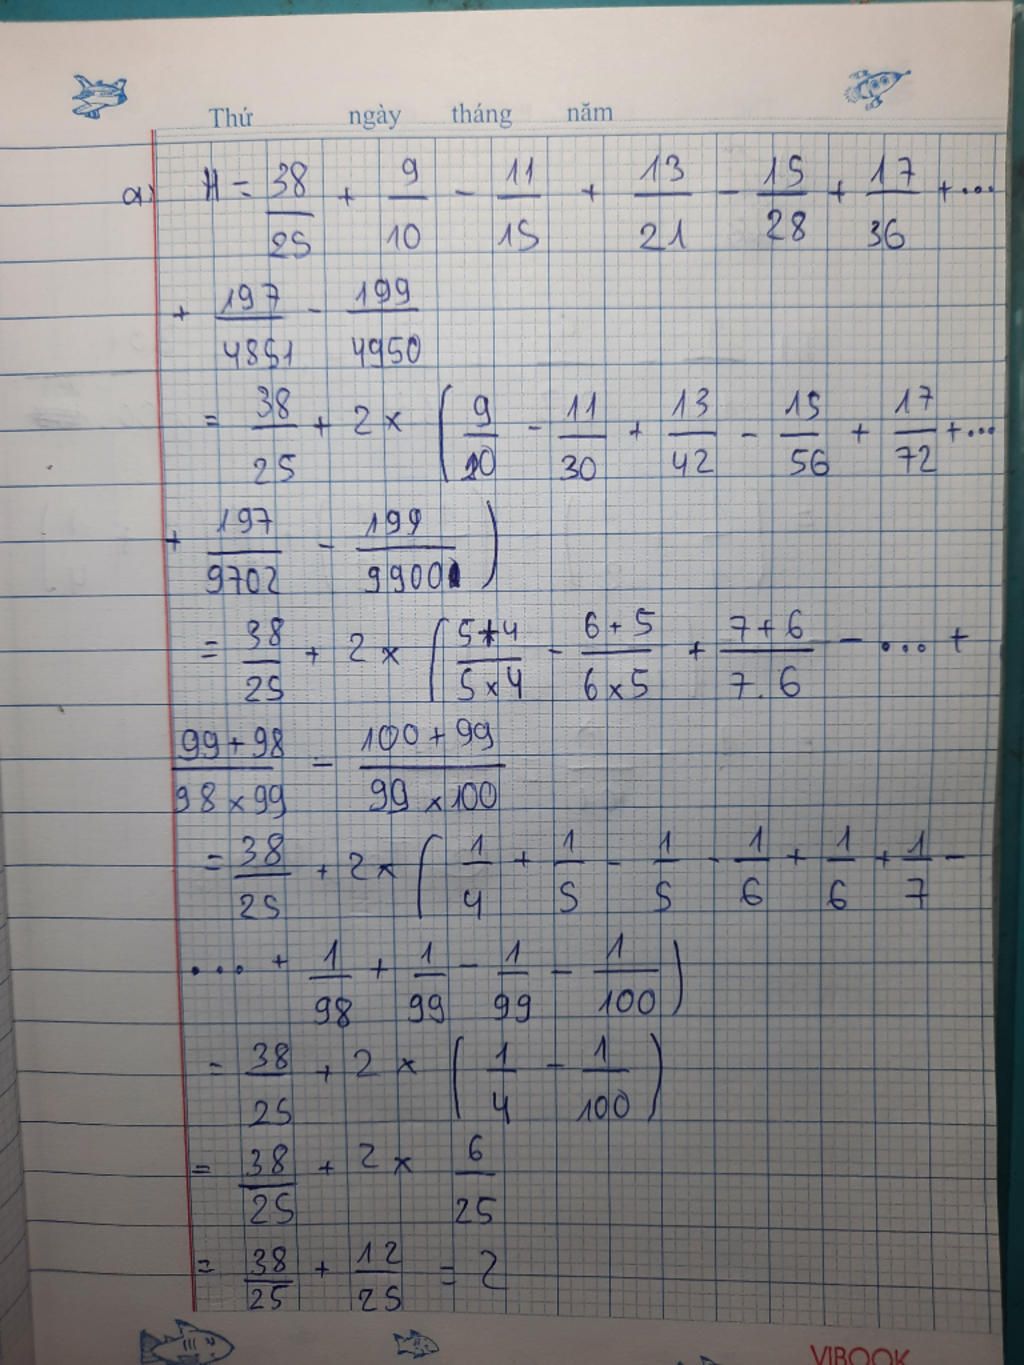 Thứ ngày tháng năm
a) H = 38/25 + 9/10 - 11/15 + 13/21 - 15/28 + 17/36 + ...
+ 197/4851 - 199/4950
= 38/25 + 2 × ( 9/20 - 11/30 + 13/42 - 15/56 + 17/72 + ...
+ 197/9702 - 199/9900 )
= 38/25 + 2 × ( 5+4/5×4 - 6+5/6×5 + 7+6/7.6 - ... +
99+98/98×99 - 100+99/99×100
= 38/25 + 2 × ( 1/4 + 1/5 - 1/5 - 1/6 + 1/6 + 1/7 -
... + 1/98 + 1/99 - 1/99 - 1/100 )
= 38/25 + 2 × ( 1/4 - 1/100 )
= 38/25 + 2 × 6/25
= 38/25 + 12/25 = 2
VIBOOK